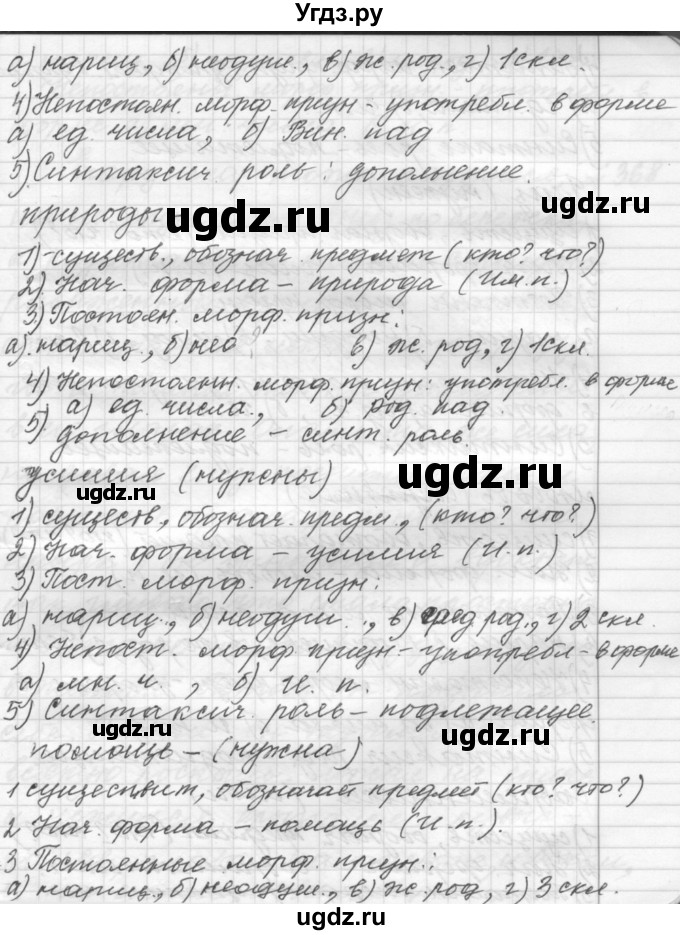 Угдз.ру
а) нариц., б) неодуш., в) ж. род., г) 1 скл.
4) Непостоян. морф. призн - употребл. в форме
а) ед. числа, б) Вин. пад
5) Синтаксич. роль: дополнение.
природы
ugdz.ru
ugdz.ru
1) существ., обознач. предмет (кто? что?)
2) Нач. форма – природа (Им.п.)
3) Постоян. морф. призн:
а) нариц., б) нео в) ж. род, г) 1 скл.
4) Непостоянн. морф. призн: употребл. в форме
а) ед. числа., б) род. пад.
5) дополнение – синт. роль.
усилия (нужны)
ugdz.ru
ugdz.ru
1) существ, обознач. предм., (кто? что?)
2) Нач. форма – усилия (И.п.)
3) Пост. морф. призн:
а) нариц., б) неодуш., в) сред род., г) 2 скл.
4) Непост. морф. призн - употребл - в форме
а) мн. ч., б) И. п.
5) Синтаксич. роль – подлежащее.
ugdz.ru
ugdz.ru
помощь – (нужна)
1 существит, обозначает предмет (кто? что?)
2 Нач. форма – помощь (И.п.).
3 Постоянные морф. призн.:
а) нариц., б) неодуш., в) ж. род, г) 3 скл.
ugdz.ru